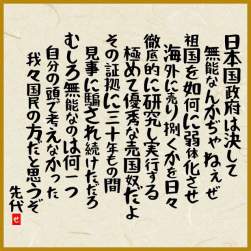 日本国政府は決して
無能なんかぢゃねぇぜ
祖国を如何に弱体化させ
海外に売り捌くかを日々
徹底的に研究し実行する
極めて優秀な売国奴だよ
その証拠に三十年もの間
見事に騙され続けただろ
むしろ無能なのは何一つ
自分の頭で考えなかった
我々国民の方だと思うぞ
先代